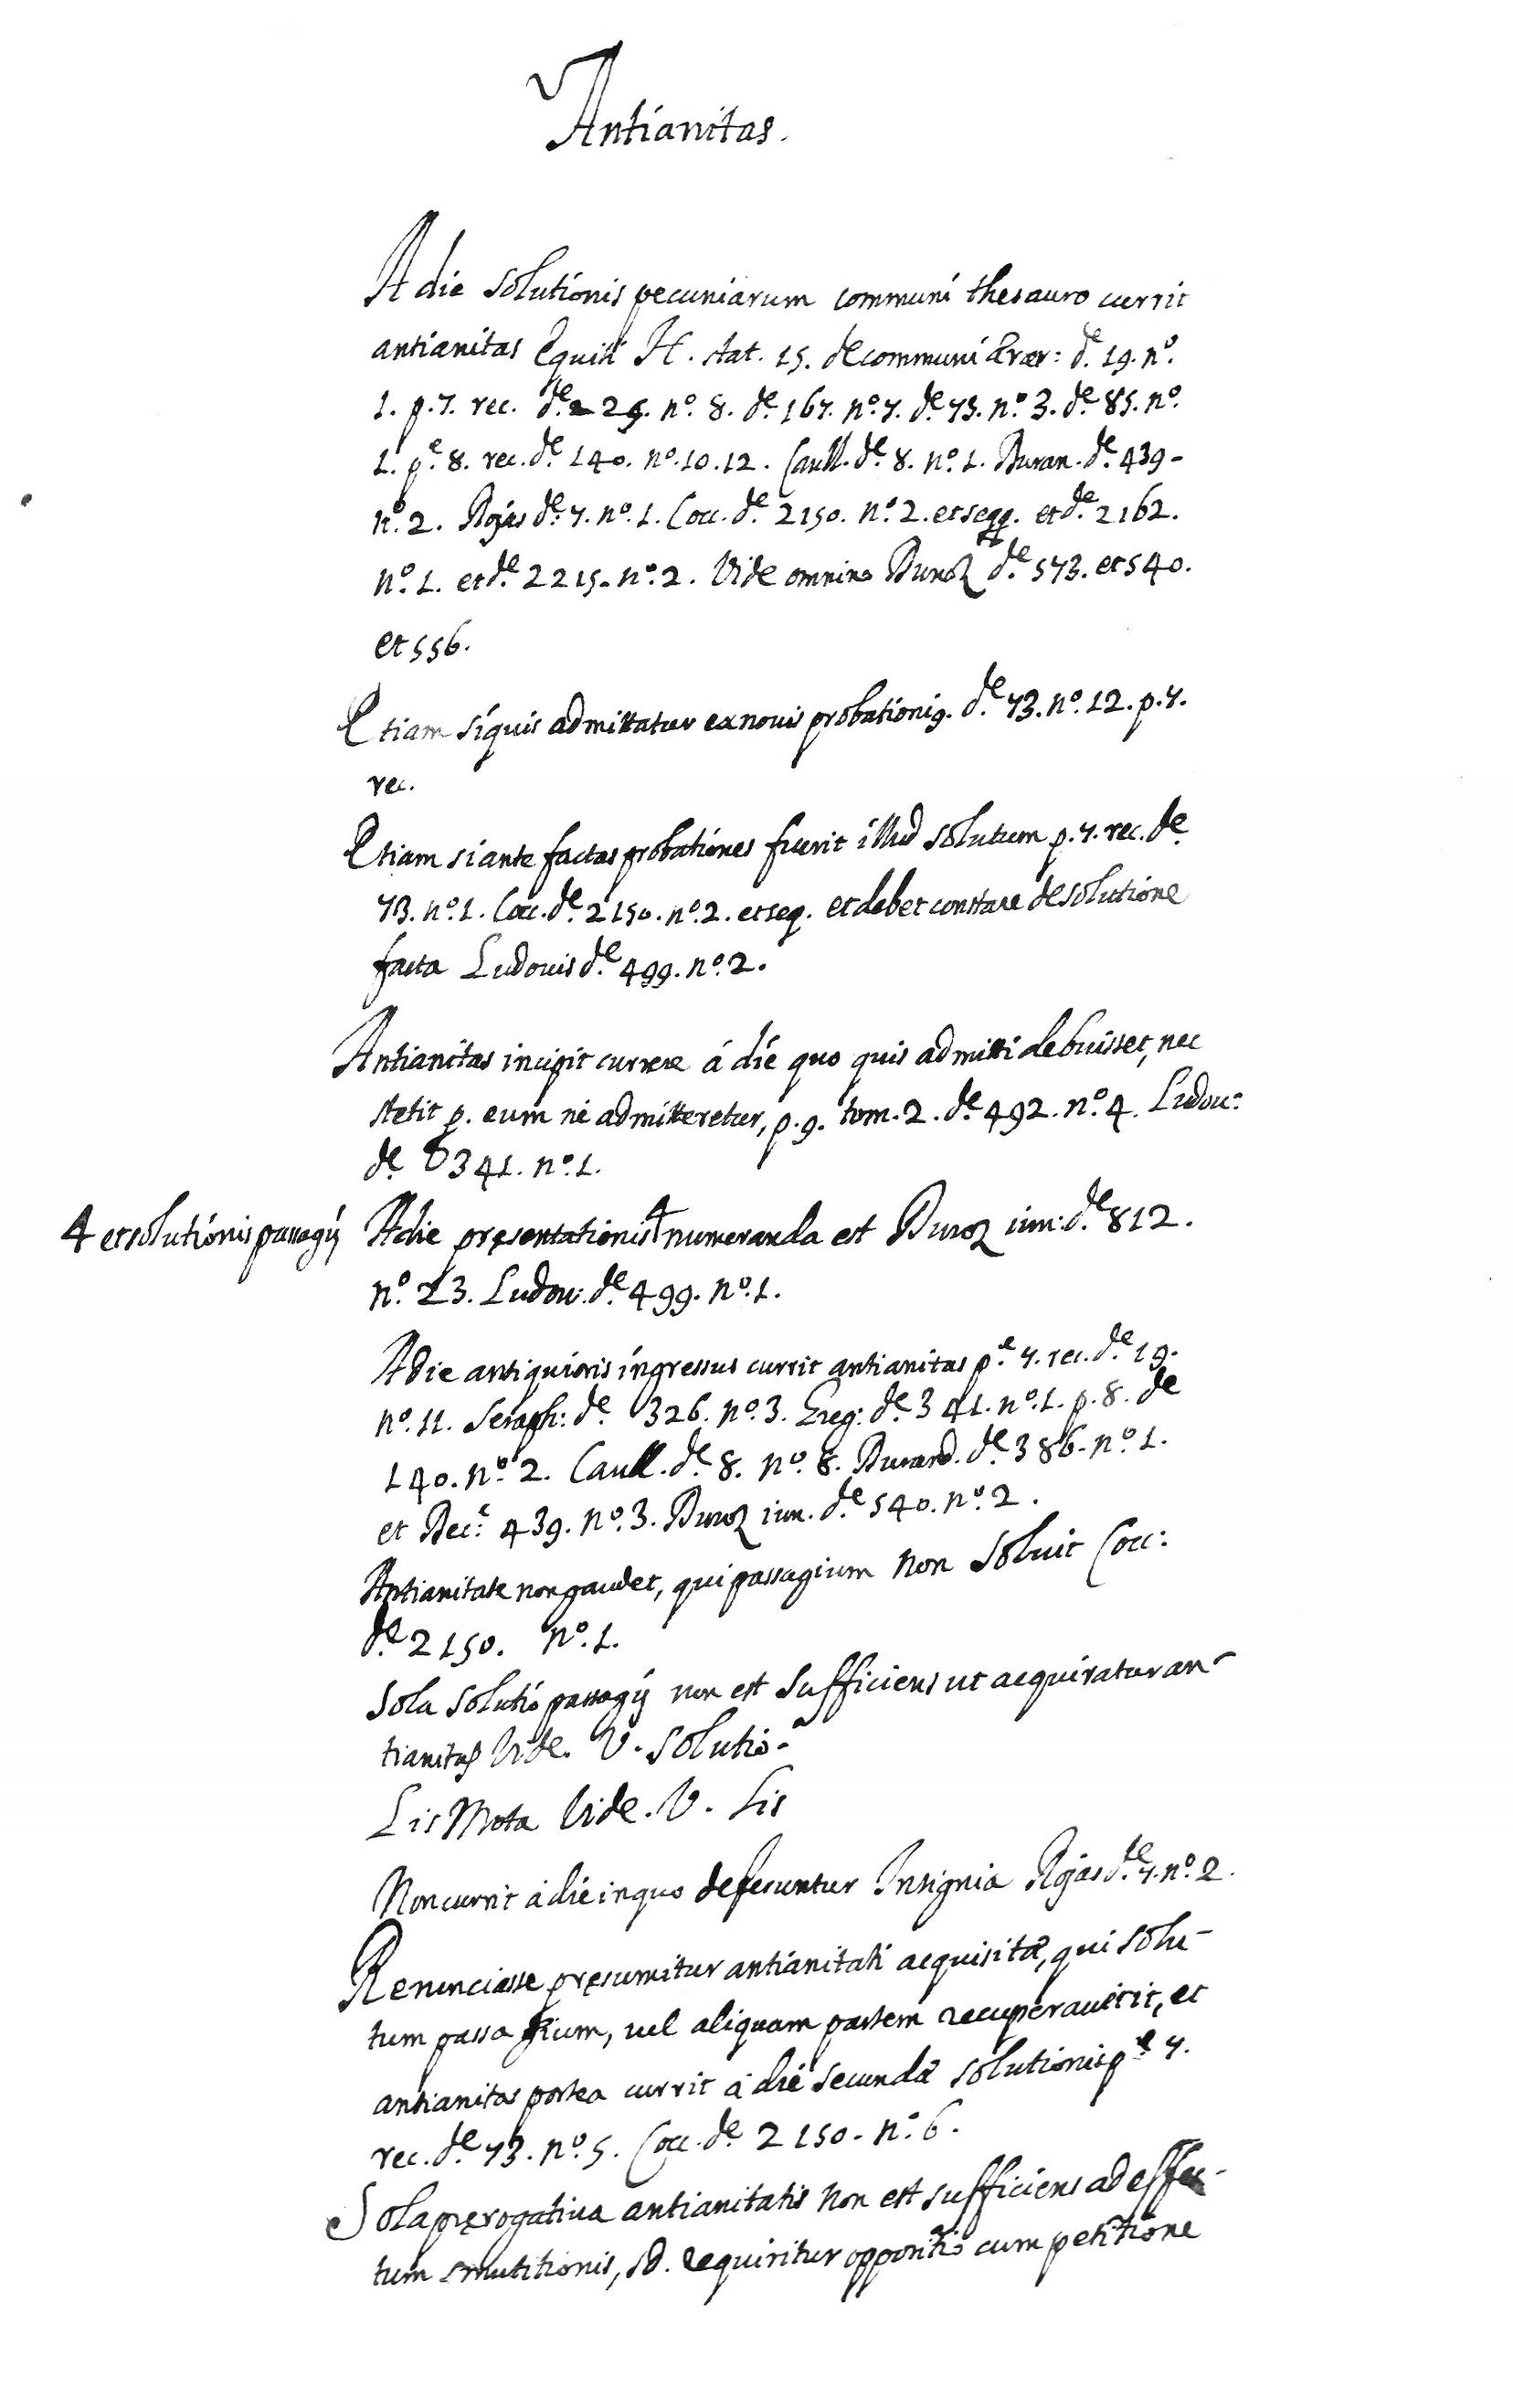 Antianitas.
A die solutionis pecuniarum communi thesauro currit
antianitas Equiti H. stat. 15. de communi Ærar: de. 19. no.
1. p. 7. rec. de. 29. no. 8. de. 167. no. 7. de. 73. no. 3. de. 85. no.
1. pe. 8. rec. de. 140. no. 10. 12. Caull. de. 8. no. 1. Buran. de. 439.
no. 2. Rojas de. 7. no. 1. Cocc. de. 2150. no. 2. et seqq. et de. 2162.
no. 1. et de. 2215. no. 2. Vide omnino Buroz de. 573. et 540.
et 556.
Etiam si quis admittatur ex nouis probationig. de. 73. no. 12. p. 7.
rec.
Etiam si ante factas probationes fuerit illud solutum p. 7. rec. de.
73. no. 1. Cocc. de. 2150. no. 2. et seq. et debet constare de solutione
facta Ludouis de. 499. no. 2.
Antianitas incipit currere á die quo quis admitti debuisset, nec
stetit p. eum ne admitteretur, p. 9. tom. 2. de. 492. no. 4. Ludou:
de. 341. no. 1.
4 et solutionis passagÿ
A die pręsentationis 4 numeranda est Buroz iun: de. 812.
no. 23. Ludou: de. 499. no. 1.
A die antiquioris ingressus currit antianitas pe. 7. rec. de. 19.
no. 11. Seraph: de. 326. no. 3. Greg: de. 341. no. 1. p. 8. de
140. no. 2. Caull. de. 8. no. 8. Burand. de. 386. no. 1.
et Rec: 439. no. 3. Buroz iun. de. 540. no. 2.
Antianitate non gaudet, qui passagium non soluit Cocc:
de. 2150. no. 1.
Sola solutio passagÿ non est sufficiens ut acquiratur an-
tianitas Vide. V. Solutio.
Lis Mota Vide. V. Lis
Non currit á die in quo deferuntur Insignia Rojas de. 7. no. 2.
Renunciasse pręsumitur antianitati acquisitæ, qui solu-
tum passagium, uel aliquam partem recuperauerit, et
antianitas postea currit á die secundæ solutionis pe. 7.
rec. de. 73. no. 5. Cocc. de. 2150. no. 6.
Sola pręrogatiua antianitatis non est sufficiens ad effec-
tum smutitionis, sd. requiritur oppositio cum petitione